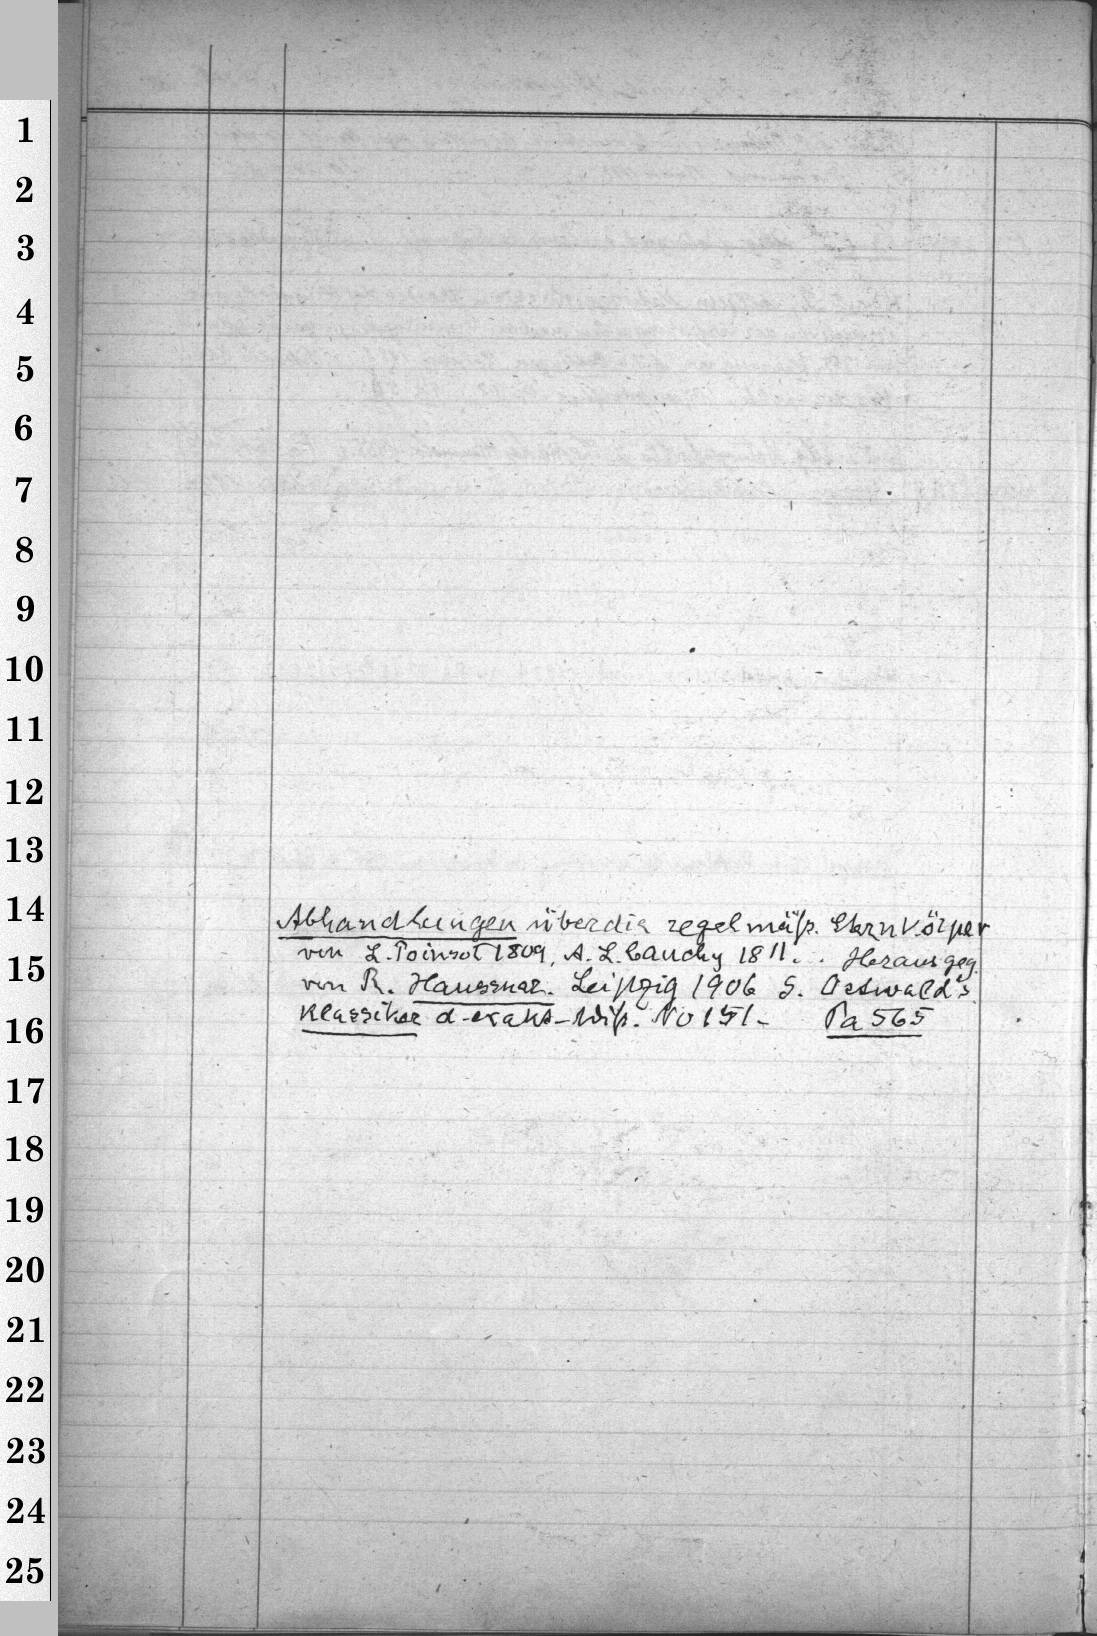 1
2
3
4
5
6
7
8
9
10
11
12
13
14
Abhandlungen über die regelmäß. Sternkörper
von L. Poinsot 1809, A. L. Cauchy 1811... Herausgeg.
15
von R. Haussner. Leipzig 1906 S. Ostwald's
Klassiker d. exakt. Wiß. No 151. Pa 565
16
17
18
19
20
21
22
23
24
25